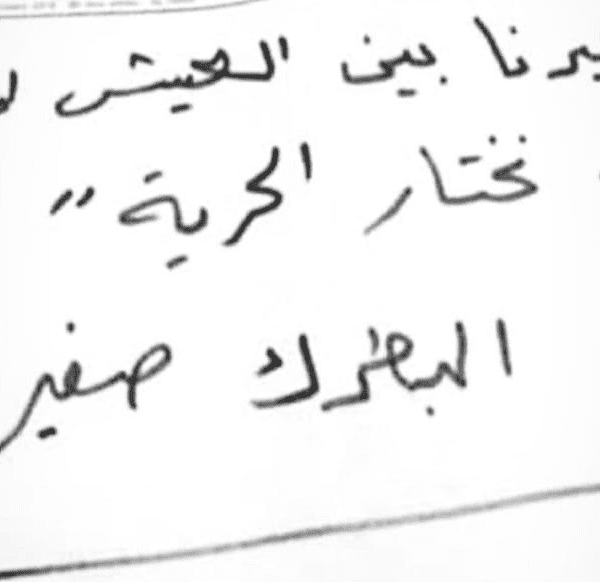 يرنا بين العيش
نختار الحرية"
البطرك صفير